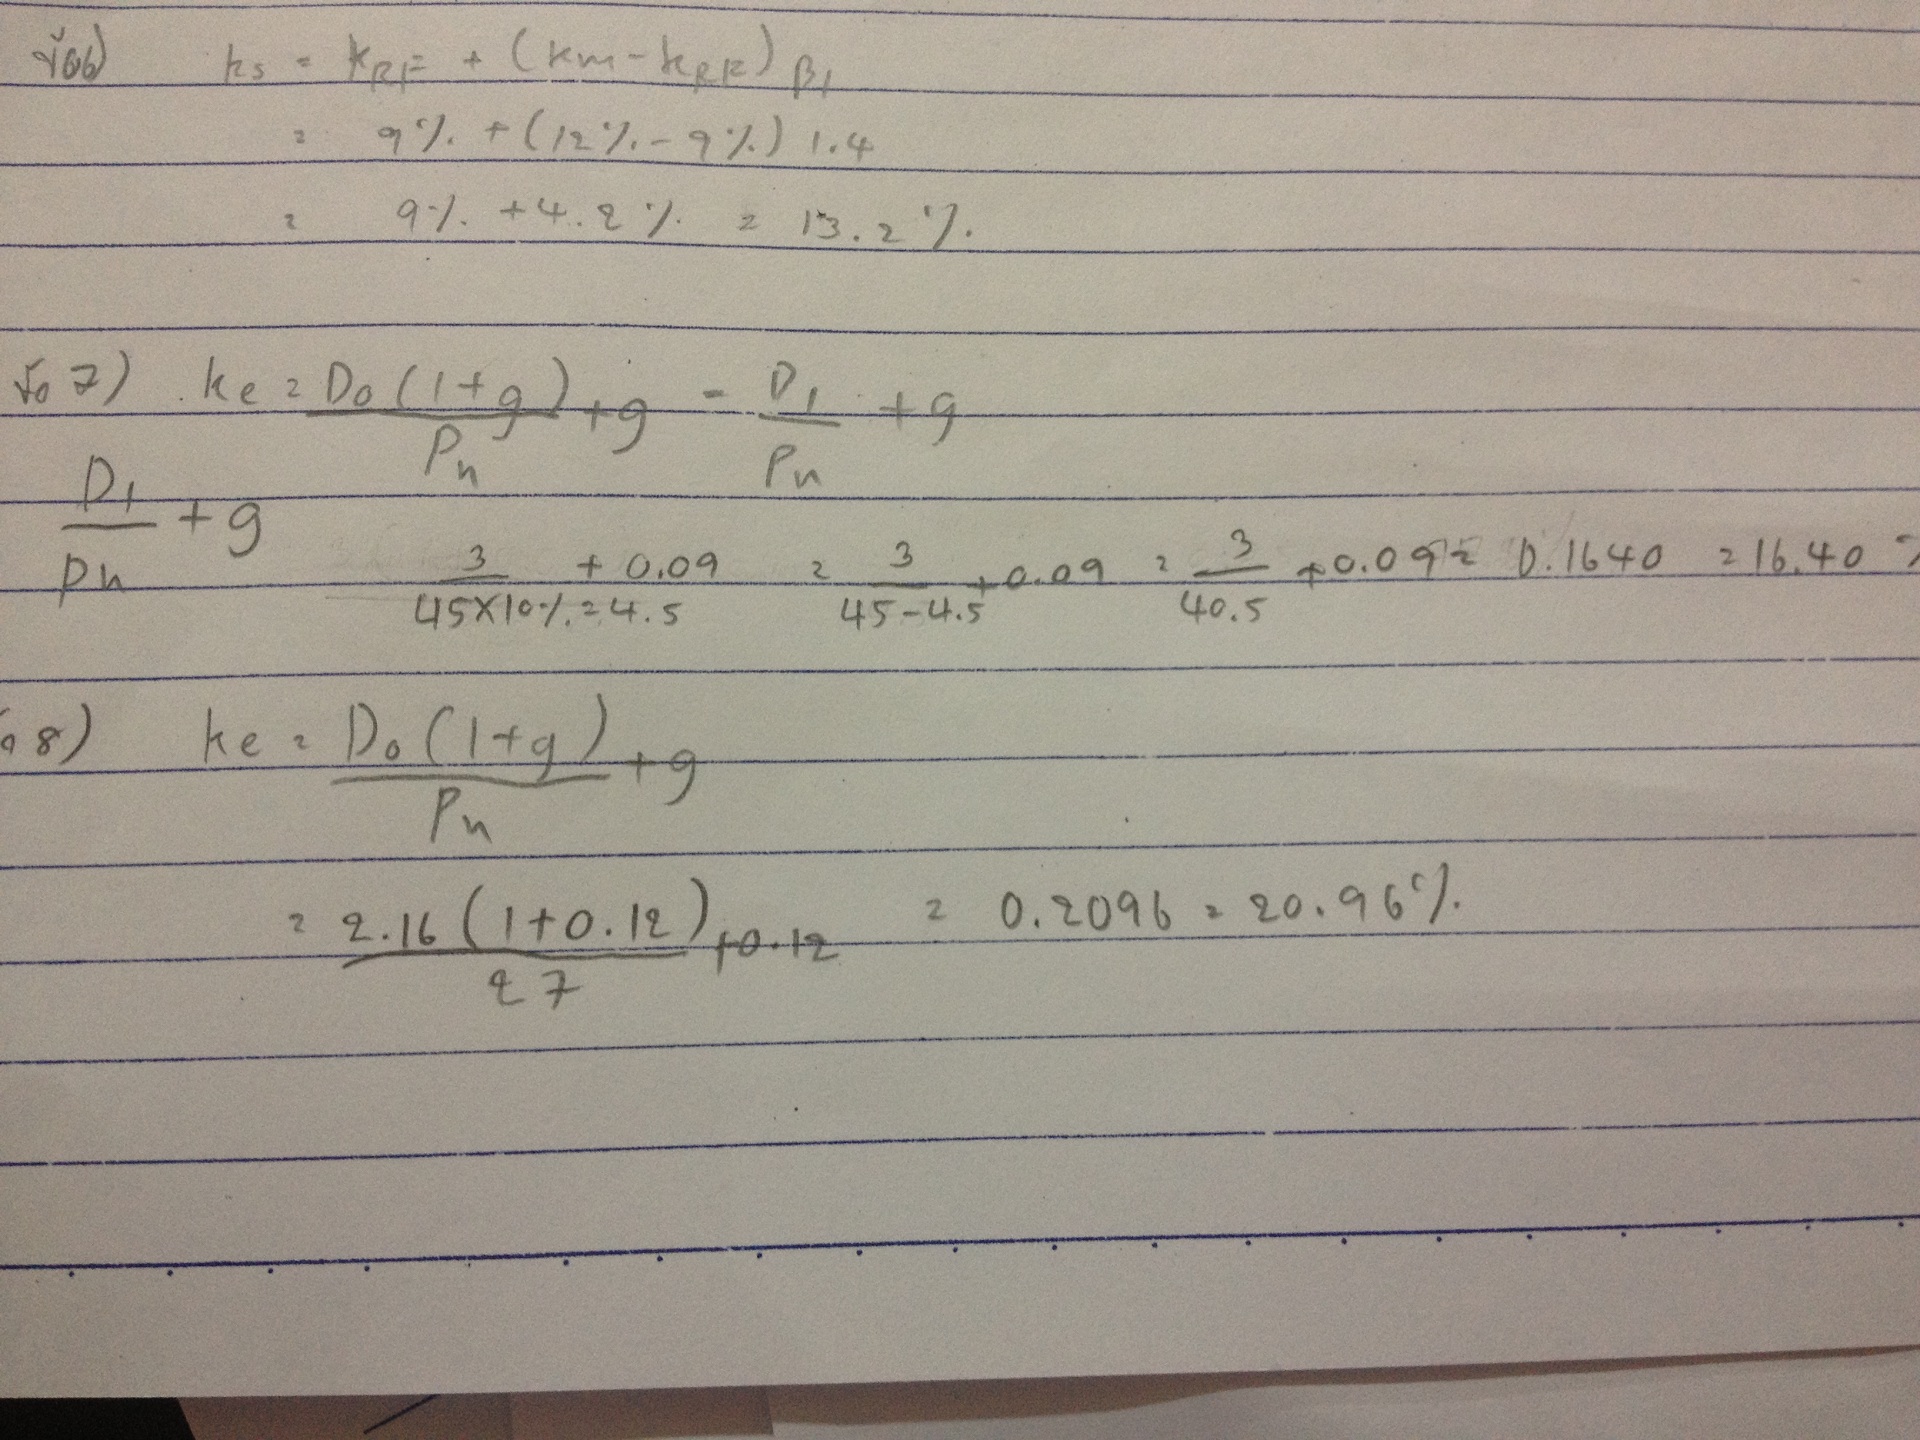 ข้อ 6) ks = kRF + (km - kRF) β1
= 9% + (12% - 9%) 1.4
= 9% + 4.2% = 13.2%
ข้อ 7) ke = D0(1+g)/Pn + g = D1/Pn + g
D1/Pn + g
3/45×10%=4.5 + 0.09 = 3/45-4.5 + 0.09 = 3/40.5 + 0.09 = 0.1640 = 16.40%
ข้อ 8) ke = D0(1+g)/Pn + g
= 2.16(1+0.12)/27 + 0.12 = 0.2096 = 20.96%